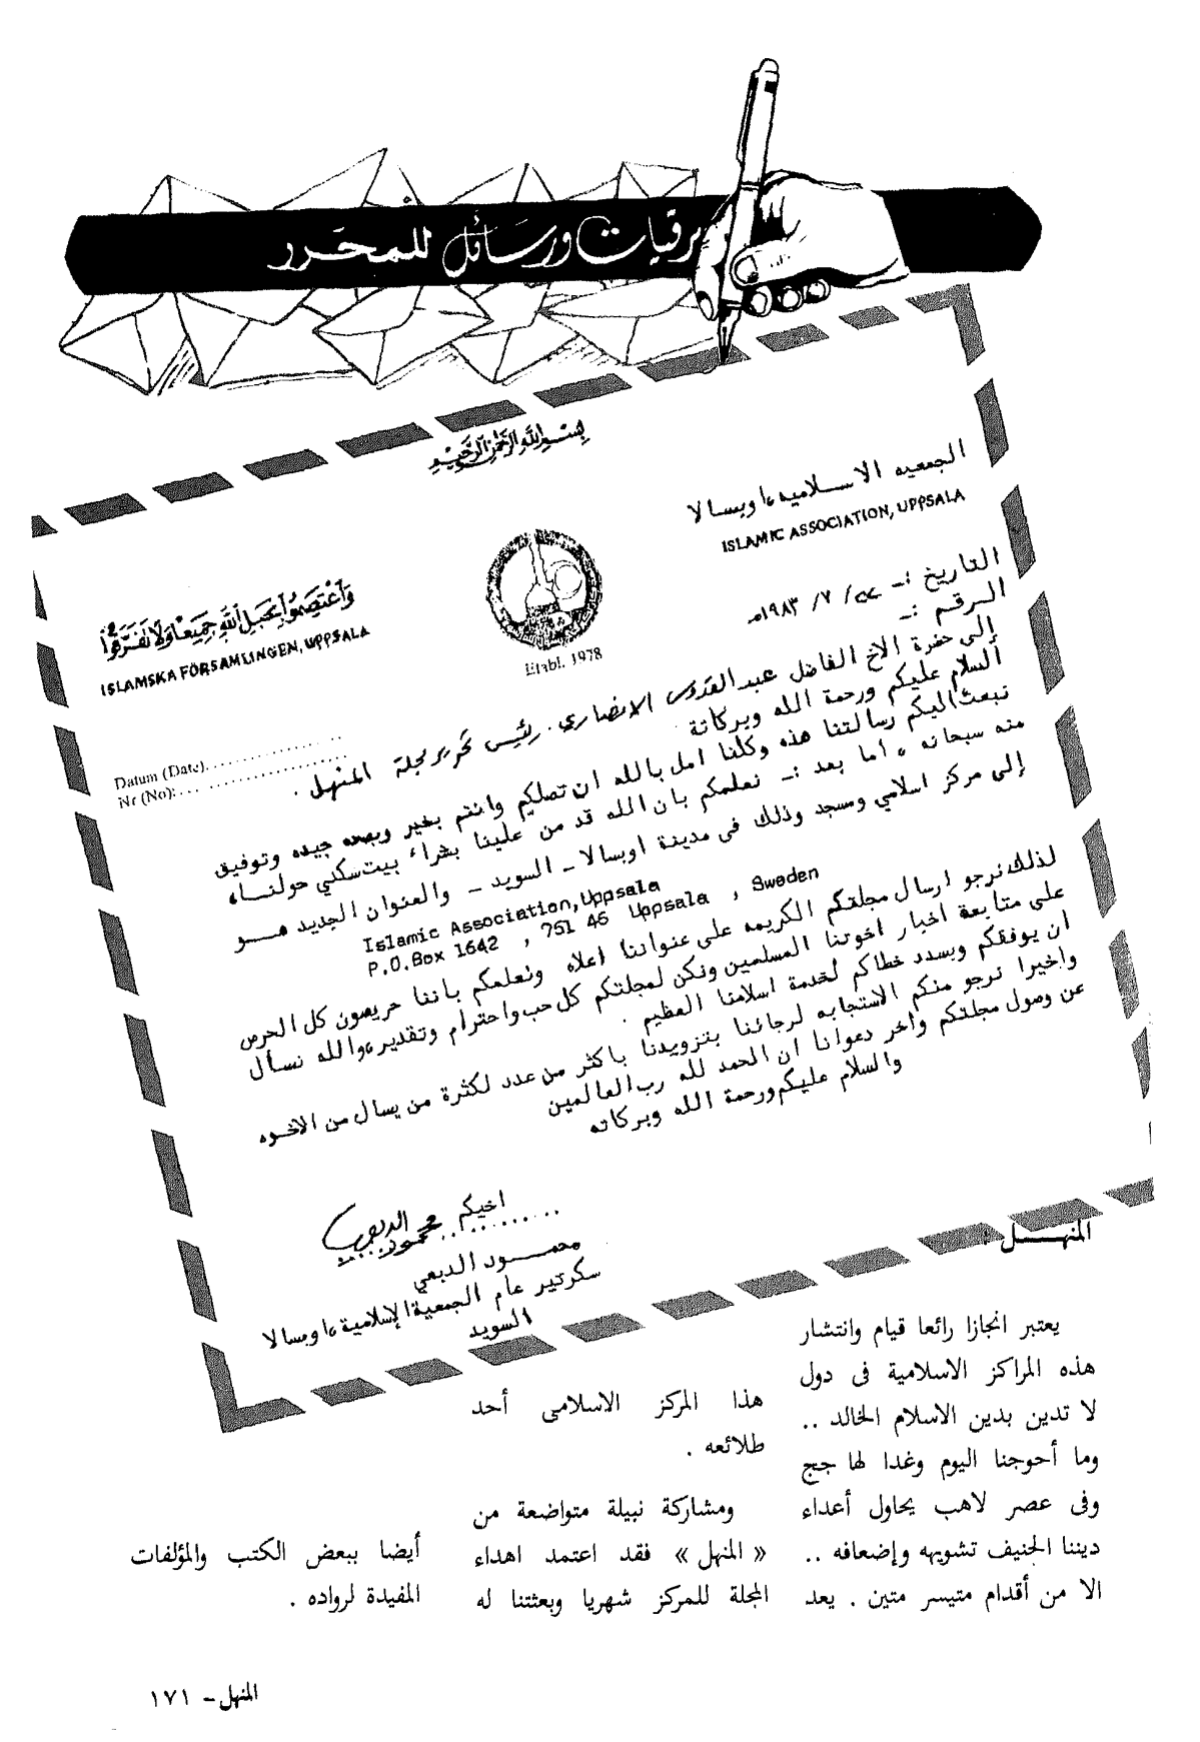 برقيات ورسائل للمحرر
بسم الله الرحمن الرحيم
الجمعيه الاسلاميه ، اوبسالا
ISLAMIC ASSOCIATION, UPPSALA
وَاعْتَصِمُوا بِحَبْلِ اللَّهِ جَمِيعًا وَلَا تَفَرَّقُوا
ISLAMSKA FÖRSAMLINGEN, UPPSALA
Etabl. 1978
التاريخ :- / ٧ / ١٩٨٣م
الرقم :-
Datum (Date)..............
Nr (No):...................
إلى حضرة الاخ الفاضل عبد القدوس الانصاري . رئيس تحرير مجلة المنهل .
السلام عليكم ورحمة الله وبركاتة
نبعث اليكم رسالتنا هذه وكلنا امل بالله ان تصلكم وانتم بخير وبصحه جيده وتوفيق
منه سبحانه ، اما بعد :- نعلمكم بان الله قد من علينا بشراء بيت سكني حولناه
إلى مركز اسلامي ومسجد وذلك فى مدينة اوبسالا - السويد - والعنوان الجديد هــو
Islamic Association, Uppsala
P.O.Box 1642 , 751 46 Uppsala , Sweden
لذلك نرجو ارسال مجلتكم الكريمه على عنواننا اعلاه ونعلمكم باننا حريصون كل الحرص
على متابعة اخبار اخوتنا المسلمين ونكن لمجلتكم كل حب واحترام وتقدير ، والله نسأل
ان يوفقكم ويسدد خطاكم لخدمة اسلامنا العظيم .
واخيرا نرجو منكم الاستجابه لرجائنا بتزويدنا باكثر من عدد لكثرة من يسال من الاخوه
عن وصول مجلتكم واخر دعوانا ان الحمد لله رب العالمين
والسلام عليكم ورحمة الله وبركاته
اخيكم
محمود الدبعي
سكرتير عام الجمعية الإسلامية ، اوبسالا
السويد
المنهــل :
يعتبر انجازا رائعا قيام وانتشار
هذه المراكز الاسلامية فى دول
لا تدين بدين الاسلام الخالد ..
وما أحوجنا اليوم وغدا لها جج
وفى عصر لاهب يحاول أعداء
ديننا الحنيف تشويهه وإضعافه ..
الا من أقدام متيسر متين . يعد
هذا المركز الاسلامى أحد
طلائعه .
ومشاركة نبيلة متواضعة من
« المنهل » فقد اعتمد اهداء
المجلة للمركز شهريا وبعثتنا له
أيضا ببعض الكتب والمؤلفات
المفيدة لرواده .
المنهل - ١٧١